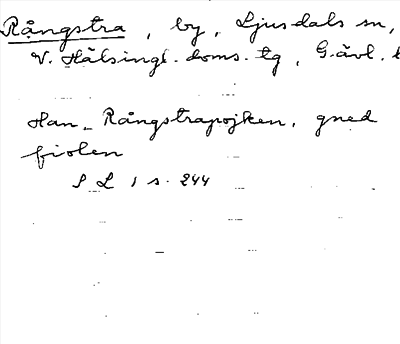 Rångstra, by, Ljusdals sn,
V. Hälsingl. doms. tg, Gävl.
Han, Rångstrapojken, gned
fiolen
S L 1 s. 244